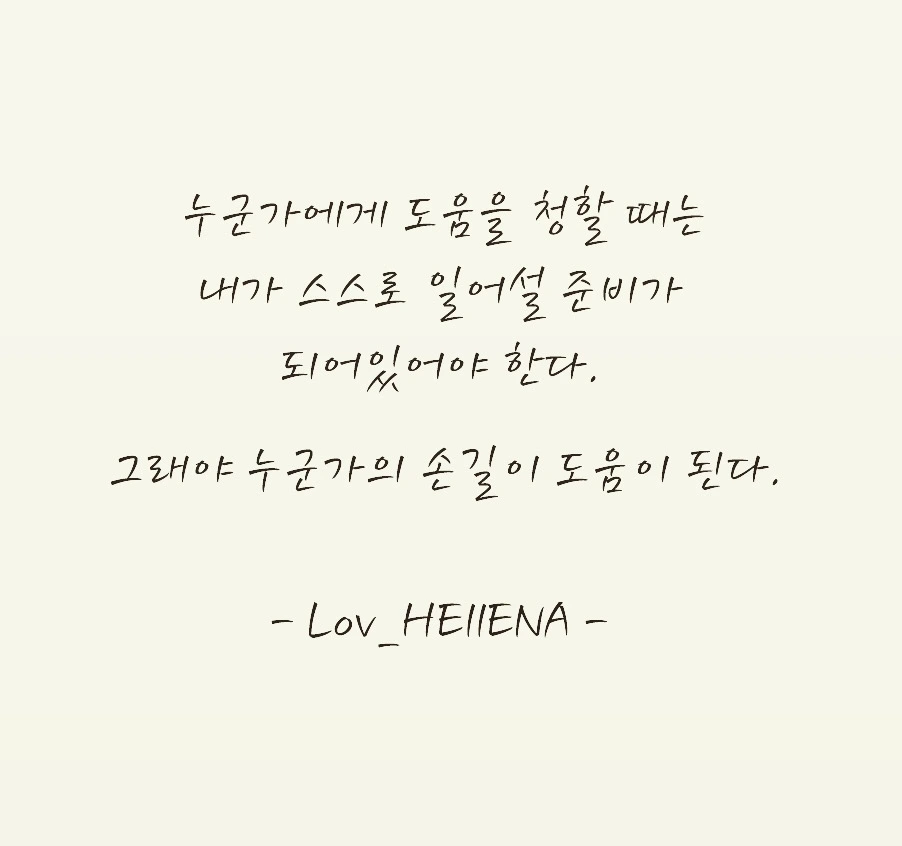 누군가에게 도움을 청할 때는
내가 스스로 일어설 준비가
되어있어야 한다.
그래야 누군가의 손길이 도움이 된다.
- Lov_HEllENA -